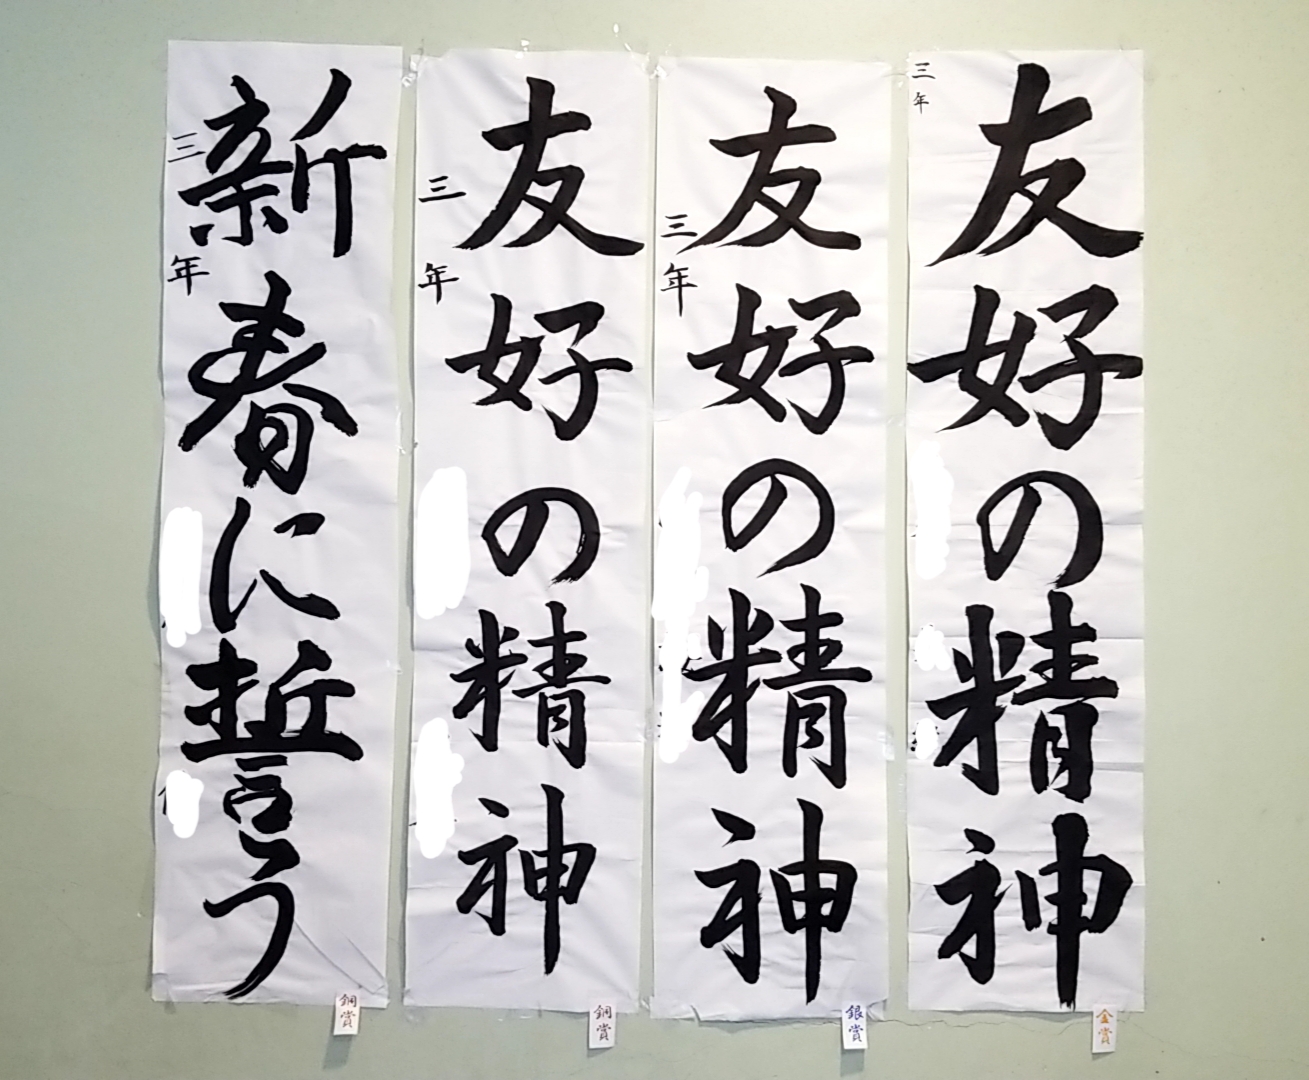 友好の精神
三年
金賞
友好の精神
三年
銀賞
友好の精神
三年
銅賞
新春に誓う
三年
銅賞